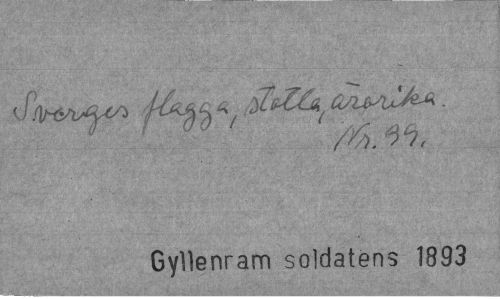 Sverges flagga, stolta, ärorika.
Nr. 99.
Gyllenram soldatens 1893